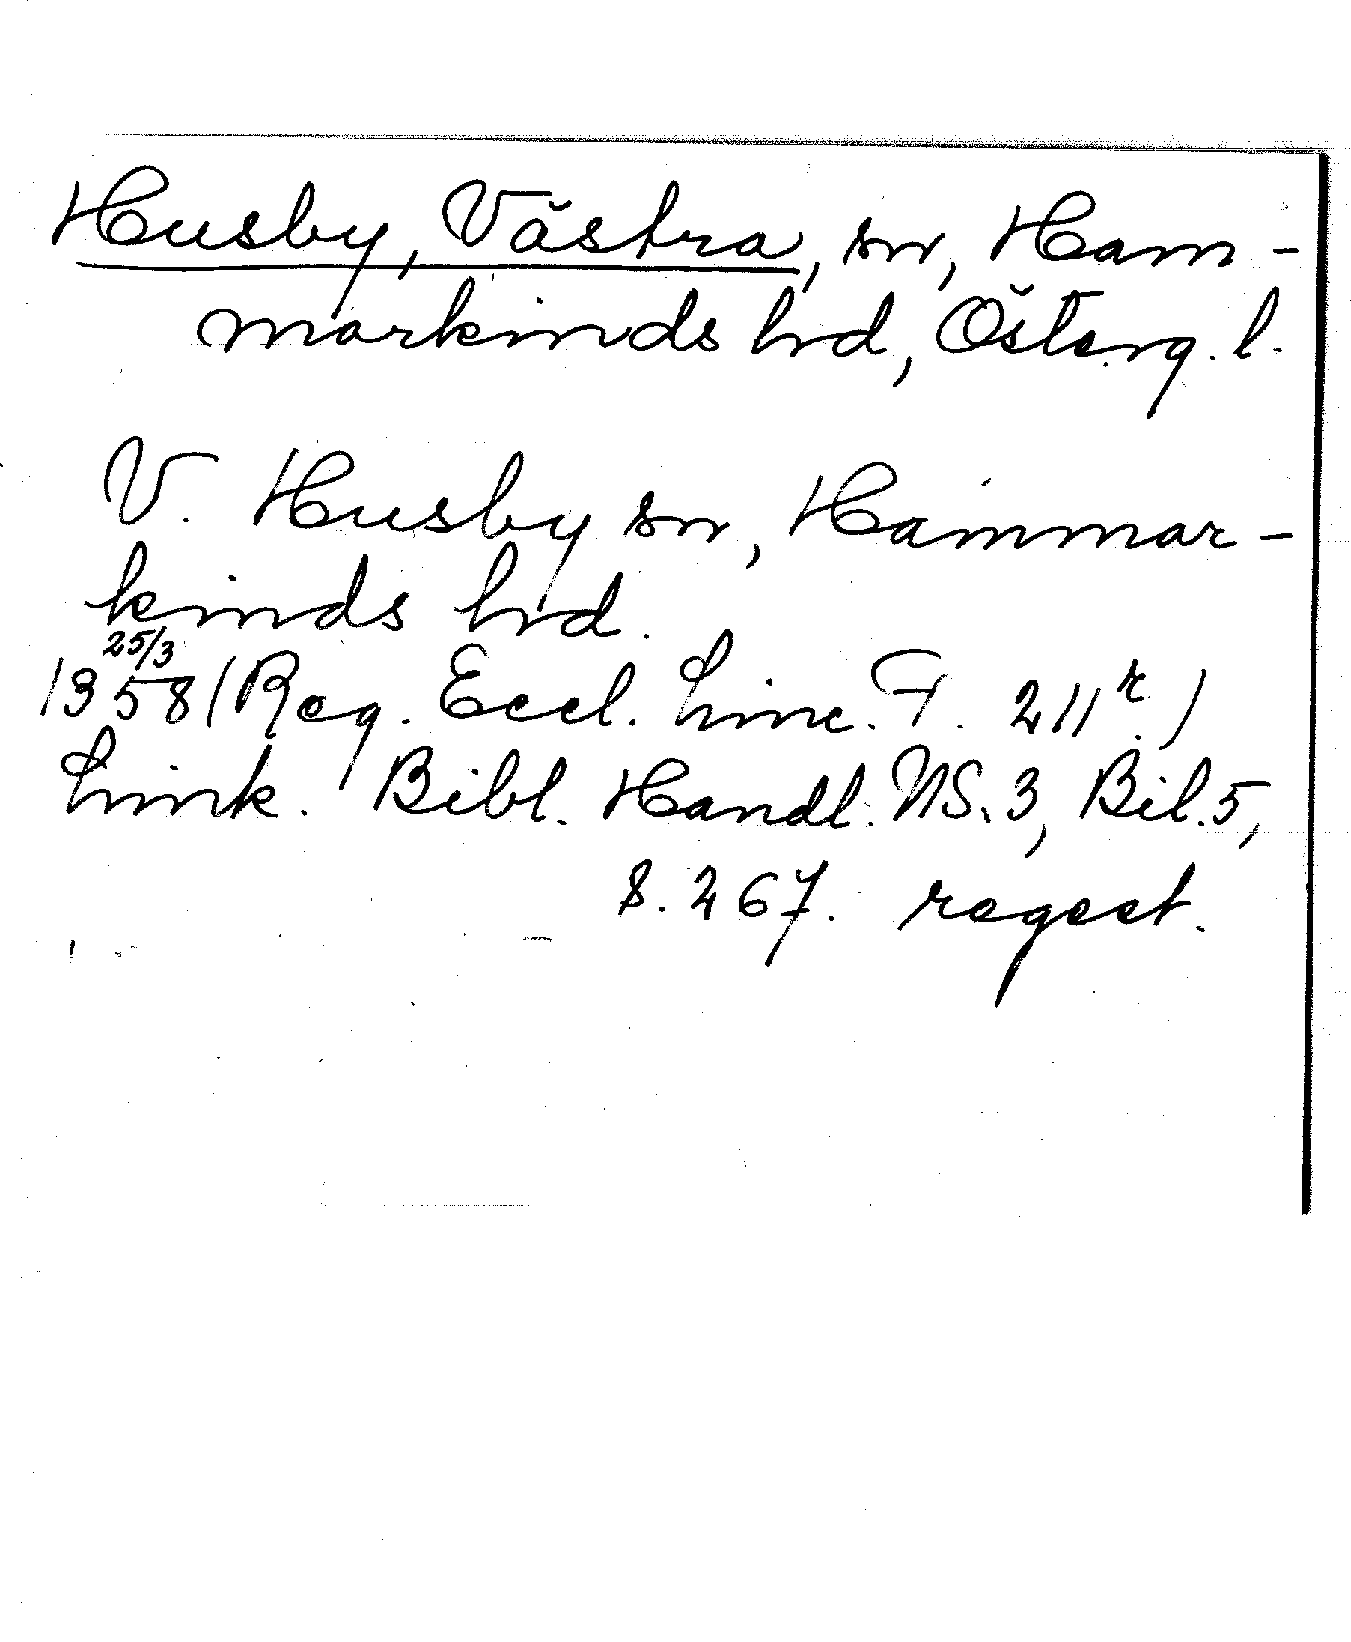 Husby, Västra, sn, Ham-
markinds hd, Österg. l.
V. Husby sn, Hammar-
kinds hd.
25/3
1358 (Reg. Eccl. Linc. F. 211r.)
Link. Bibl. Handl. NS. 3, Bil. 5,
s. 267. regest.